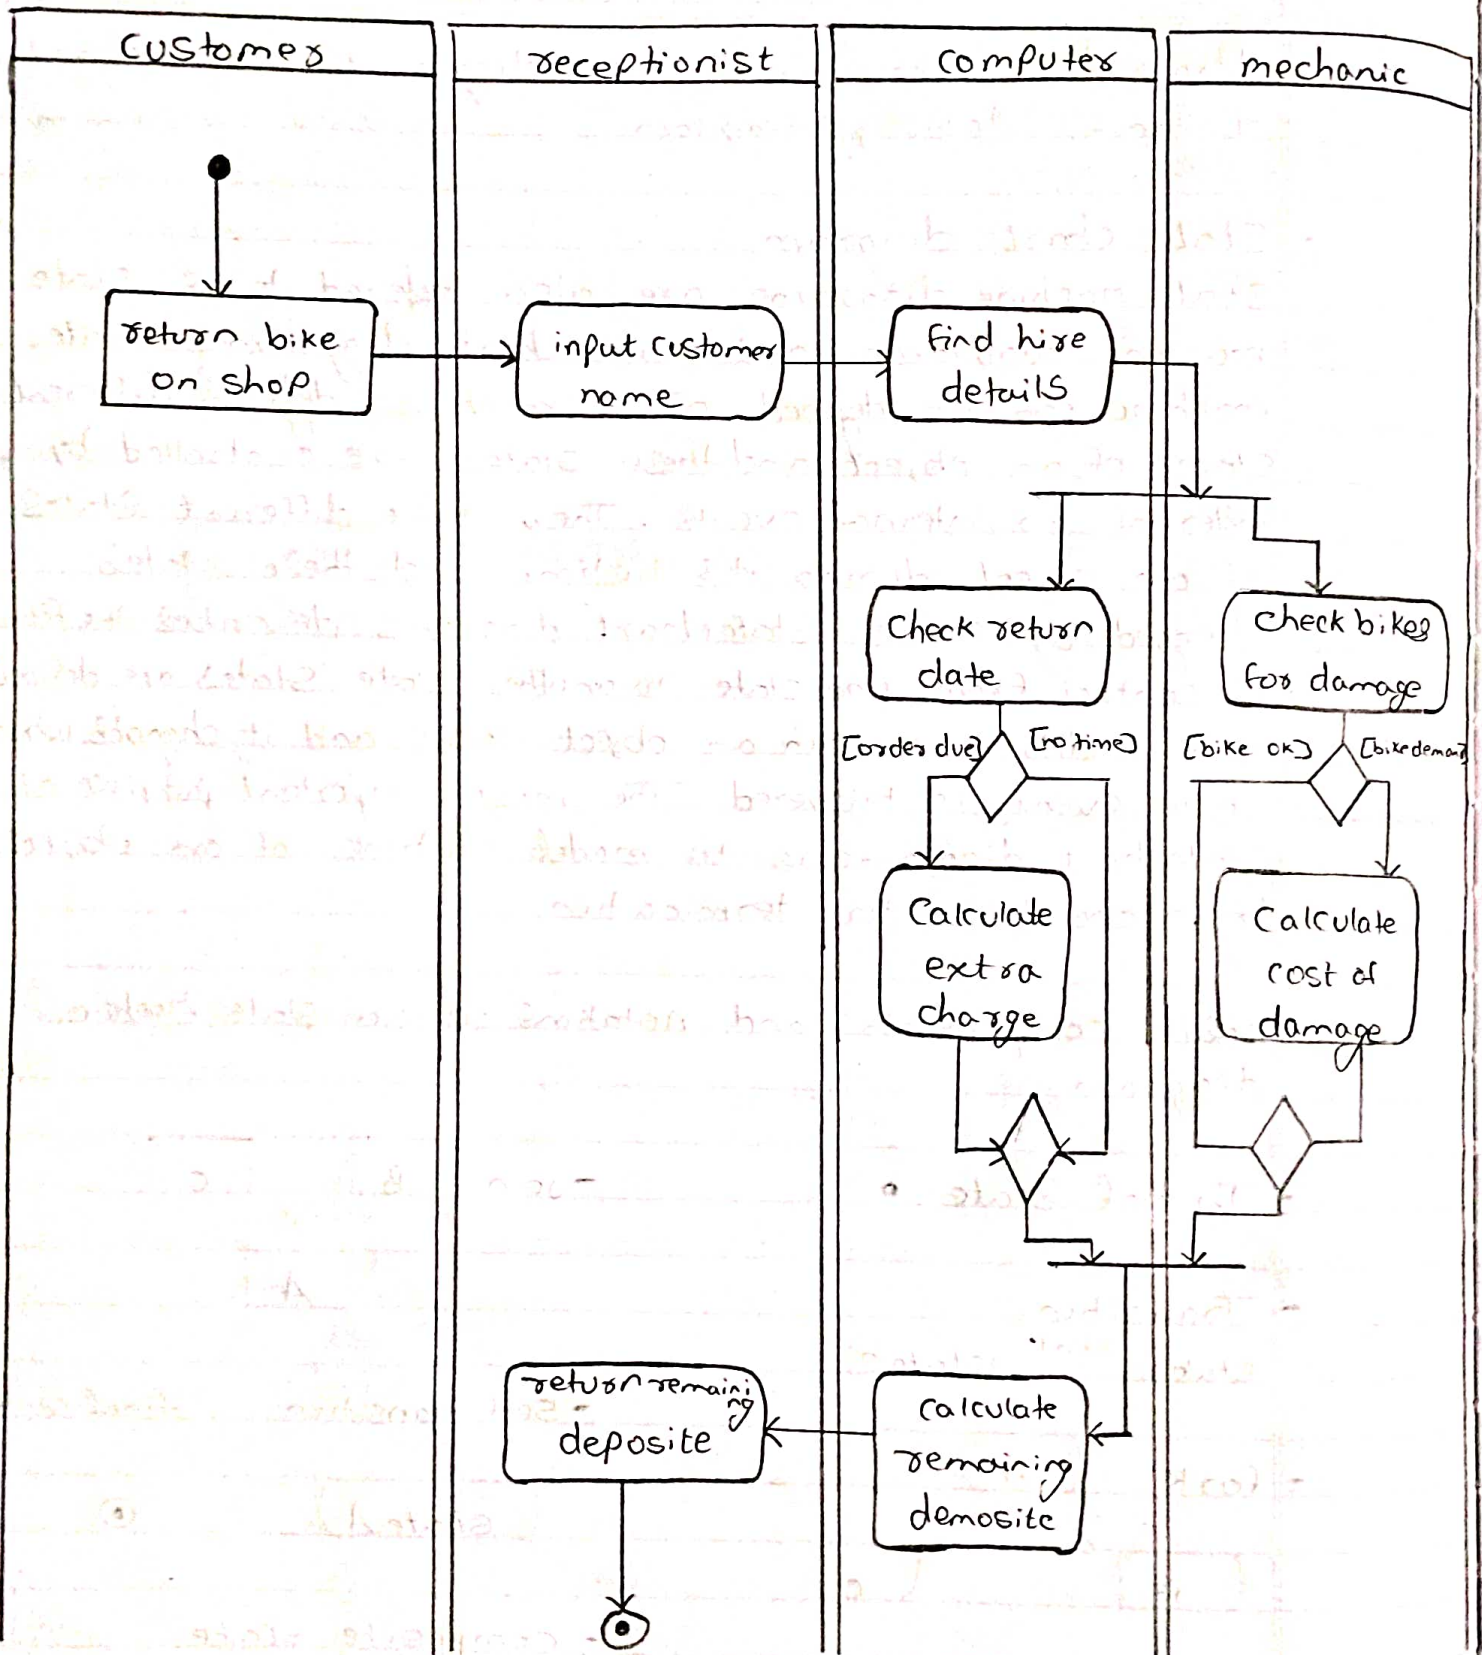 customer
receptionist
computer
mechanic
return bike
on shop
input customer
name
find hire
details
Check return
date
check bikes
for damage
[order due]
[no time]
[bike ok]
Calculate
extra
charge
Calculate
cost of
damage
return remaini
ng
deposite
Calculate
remaining
demosite